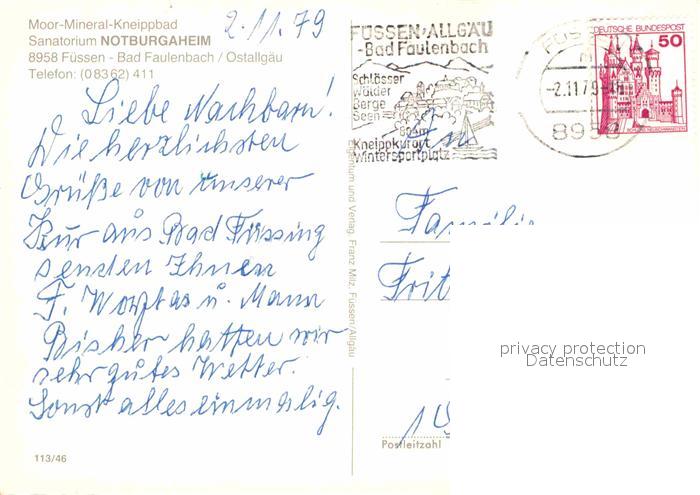 Moor-Mineral-Kneippbad
Sanatorium NOTBURGAHEIM
8958 Füssen - Bad Faulenbach / Ostallgäu
Telefon: (0 83 62) 411
2.11.79
Liebe Nachbarn!
Die herzlichsten
Grüße von unserer
Kur aus Bad Füssing
senden Ihnen
F. u. Mann
Bisher hatten wir
sehr gutes Wetter.
Sonst alles einmalig.
113/46
Eigentum und Verlag Franz Milz, Füssen/Allgäu
FÜSSEN-ALLGÄU
-Bad Faulenbach
Schlösser
Wälder
Berge
Seen
Kneippkurort
Wintersportplatz
-2.11.79
8958
DEUTSCHE BUNDESPOST
50
Familie
Frit
Postleitzahl
privacy protection
Datenschutz